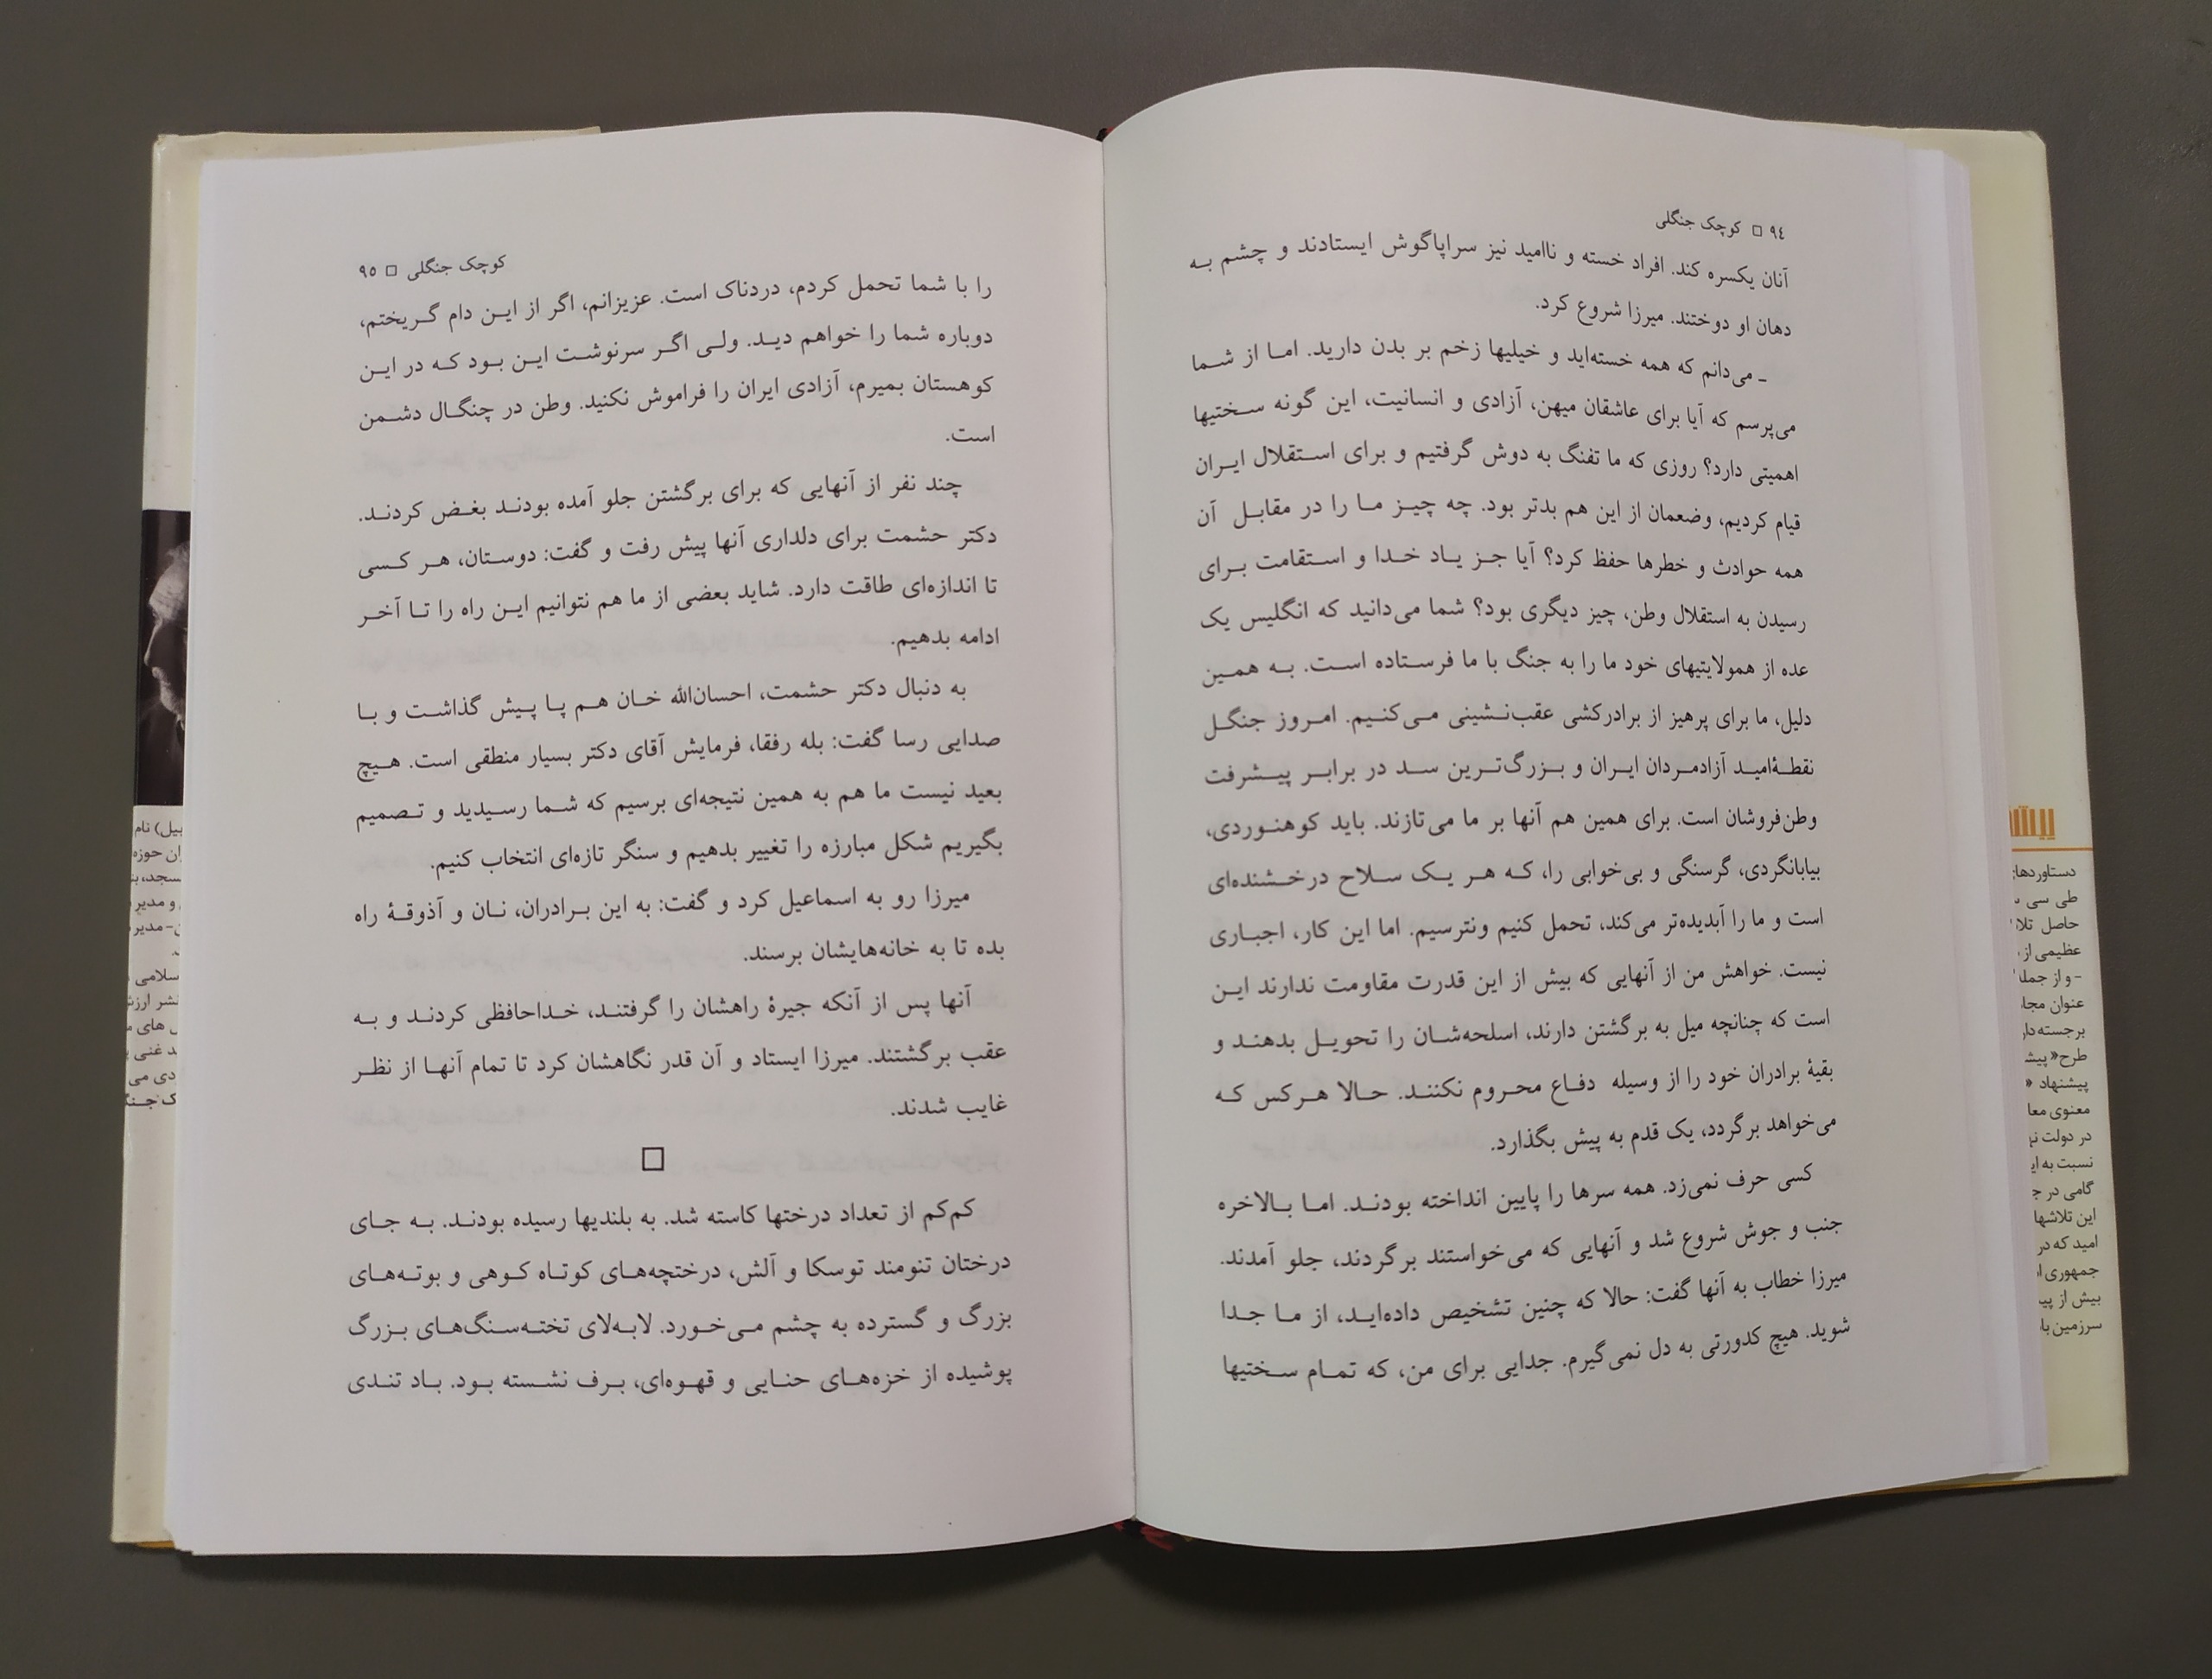 ۹٤ □ کوچک جنگلی
آنان یکسره کند. افراد خسته و ناامید نیز سراپاگوش ایستادند و چشم به
دهان او دوختند. میرزا شروع کرد.
ـ می‌دانم که همه خسته‌اید و خیلیها زخم بر بدن دارید. اما از شما
می‌پرسم که آیا برای عاشقان میهن، آزادی و انسانیت، این گونه سختیها
اهمیتی دارد؟ روزی که ما تفنگ به دوش گرفتیم و برای استقلال ایران
قیام کردیم، وضعمان از این هم بدتر بود. چه چیز ما را در مقابل آن
همه حوادث و خطرها حفظ کرد؟ آیا جز یاد خدا و استقامت برای
رسیدن به استقلال وطن، چیز دیگری بود؟ شما می‌دانید که انگلیس یک
عده از همولایتیهای خود ما را به جنگ با ما فرستاده است. به همین
دلیل، ما برای پرهیز از برادرکشی عقب‌نشینی می‌کنیم. امروز جنگل
نقطهٔ‌امید آزادمردان ایران و بزرگ‌ترین سد در برابر پیشرفت
وطن‌فروشان است. برای همین هم آنها بر ما می‌تازند. باید کوهنوردی،
بیابانگردی، گرسنگی و بی‌خوابی را، که هر یک سلاح درخشنده‌ای
است و ما را آبدیده‌تر می‌کند، تحمل کنیم ونترسیم. اما این کار، اجباری
نیست. خواهش من از آنهایی که بیش از این قدرت مقاومت ندارند این
است که چنانچه میل به برگشتن دارند، اسلحه‌شان را تحویل بدهند و
بقیهٔ برادران خود را از وسیله دفاع محروم نکنند. حالا هرکس که
می‌خواهد برگردد، یک قدم به پیش بگذارد.
کسی حرف نمی‌زد. همه سرها را پایین انداخته بودند. اما بالاخره
جنب و جوش شروع شد و آنهایی که می‌خواستند برگردند، جلو آمدند.
میرزا خطاب به آنها گفت: حالا که چنین تشخیص داده‌اید، از ما جدا
شوید. هیچ کدورتی به دل نمی‌گیرم. جدایی برای من، که تمام سختیها
کوچک جنگلی □ ۹٥
را با شما تحمل کردم، دردناک است. عزیزانم، اگر از این دام گریختم،
دوباره شما را خواهم دید. ولی اگر سرنوشت این بود که در این
کوهستان بمیرم، آزادی ایران را فراموش نکنید. وطن در چنگال دشمن
است.
چند نفر از آنهایی که برای برگشتن جلو آمده بودند بغض کردند.
دکتر حشمت برای دلداری آنها پیش رفت و گفت: دوستان، هر کسی
تا اندازه‌ای طاقت دارد. شاید بعضی از ما هم نتوانیم این راه را تا آخر
ادامه بدهیم.
به دنبال دکتر حشمت، احسان‌الله خان هم پا پیش گذاشت و با
صدایی رسا گفت: بله رفقا، فرمایش آقای دکتر بسیار منطقی است. هیچ
بعید نیست ما هم به همین نتیجه‌ای برسیم که شما رسیدید و تصمیم
بگیریم شکل مبارزه را تغییر بدهیم و سنگر تازه‌ای انتخاب کنیم.
میرزا رو به اسماعیل کرد و گفت: به این برادران، نان و آذوقهٔ راه
بده تا به خانه‌هایشان برسند.
آنها پس از آنکه جیرهٔ راهشان را گرفتند، خداحافظی کردند و به
عقب برگشتند. میرزا ایستاد و آن قدر نگاهشان کرد تا تمام آنها از نظر
غایب شدند.
□
کم‌کم از تعداد درختها کاسته شد. به بلندیها رسیده بودند. به جای
درختان تنومند توسکا و آلش، درختچه‌های کوتاه کوهی و بوته‌های
بزرگ و گسترده به چشم می‌خورد. لابه‌لای تخته‌سنگ‌های بزرگ
پوشیده از خزه‌های حنایی و قهوه‌ای، برف نشسته بود. باد تندی
دستاوردها
طی سی
حاصل
عظیمی از
- و از جمله
عنوان
برجسته
طرح«
پیشنهاد «
معنوی
در دولت
نسبت به
گامی در
این تلاشها
امید که در
جمهوری
بیش از
سرزمین
نام
حوزه
و مدیر
- مدیر
نشر
های
غنی
می